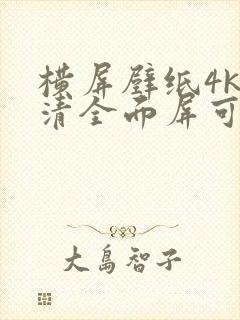 横屏壁纸4k
清全面屏可
大岛智子